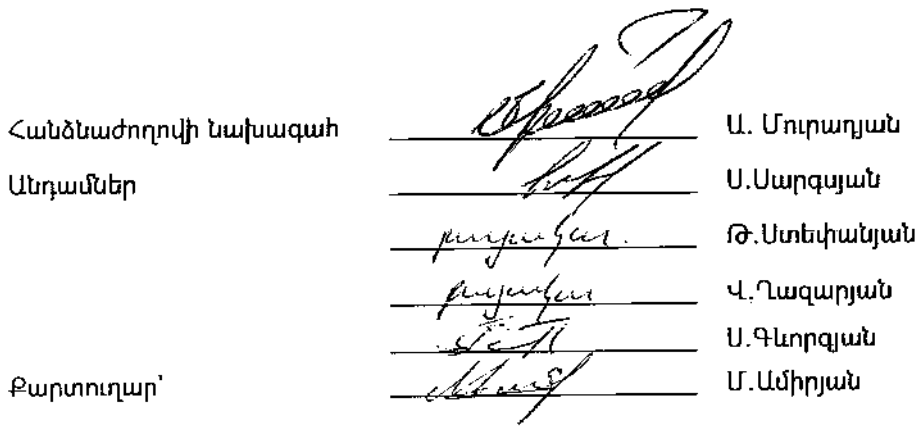 Հանձնաժողովի նախագահ Ա. Մուրադյան
Անդամներ Ս.Սարգսյան
բացակա. Թ.Ստեփանյան
բացակա Վ.Ղազարյան
Ս.Գևորգյան
Քարտուղար՝ Մ.Ամիրյան